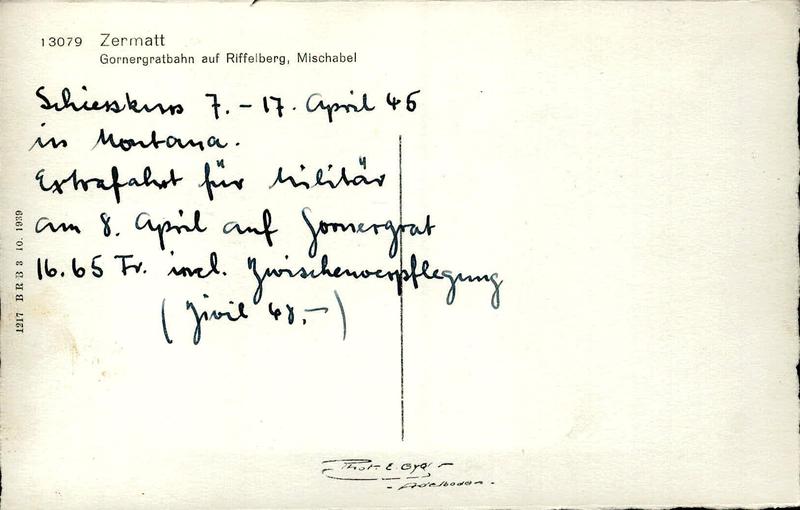 13079 Zermatt
Gornergratbahn auf Riffelberg, Mischabel
Schiesskurs 7. - 17. April 45
in Montana.
Extrafahrt für Militär
am 8. April auf Gornergrat
16.65 Fr. incl. Zwischenverpflegung
(Zivil 48.-)
1217 BRB 3 10. 1939
Phot. E. Gyger
- Adelboden -